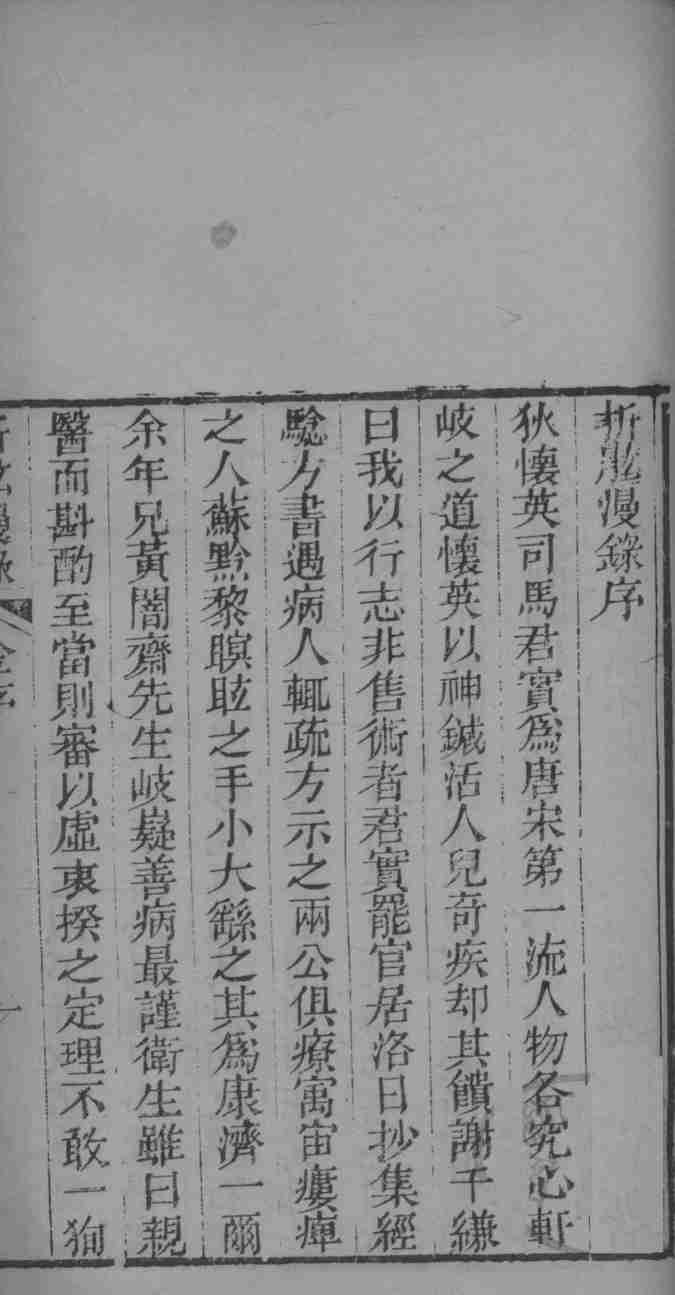 折肱漫錄序
狄懷英司馬君實爲唐宋第一流人物各究心軒
岐之道懷英以神鍼活人兒奇疾却其饋謝千縑
曰我以行志非售術者君實罷官居洛日抄集經
驗方書遇病人輒疏方示之兩公俱療寓宙癭痺
之人蘇黔黎瞑眩之手小大繇之其爲康濟一爾
余年兄黃闇齋先生岐嶷善病最謹衛生雖日親
醫而斟酌至當則審以虛衷揆之定理不敢一狥